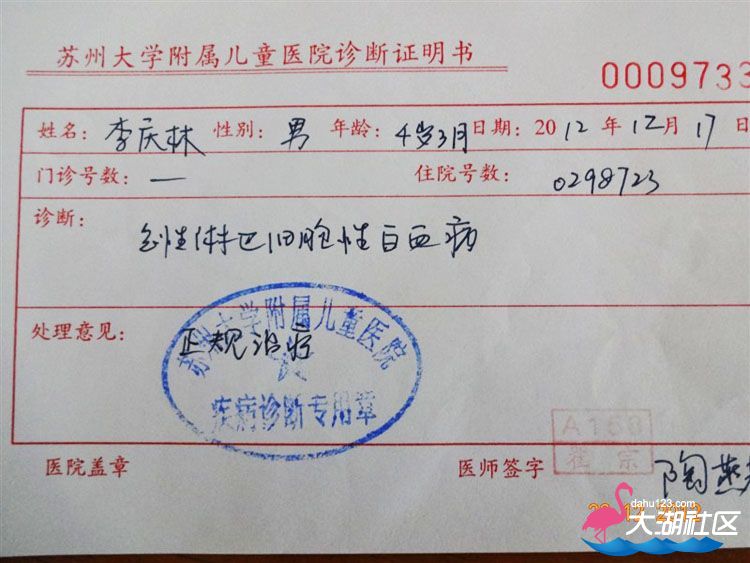 苏州大学附属儿童医院诊断证明书
0009733
姓名：李庆林 性别：男 年龄：4岁3月 日期：2012年12月17日
门诊号数：— 住院号数：0298723
诊断：
急性淋巴细胞性白血病
处理意见：正规治疗
苏州大学附属儿童医院
疾病诊断专用章
A160
医院盖章 医师签字 陶燕
dahu123.com
大湖社区